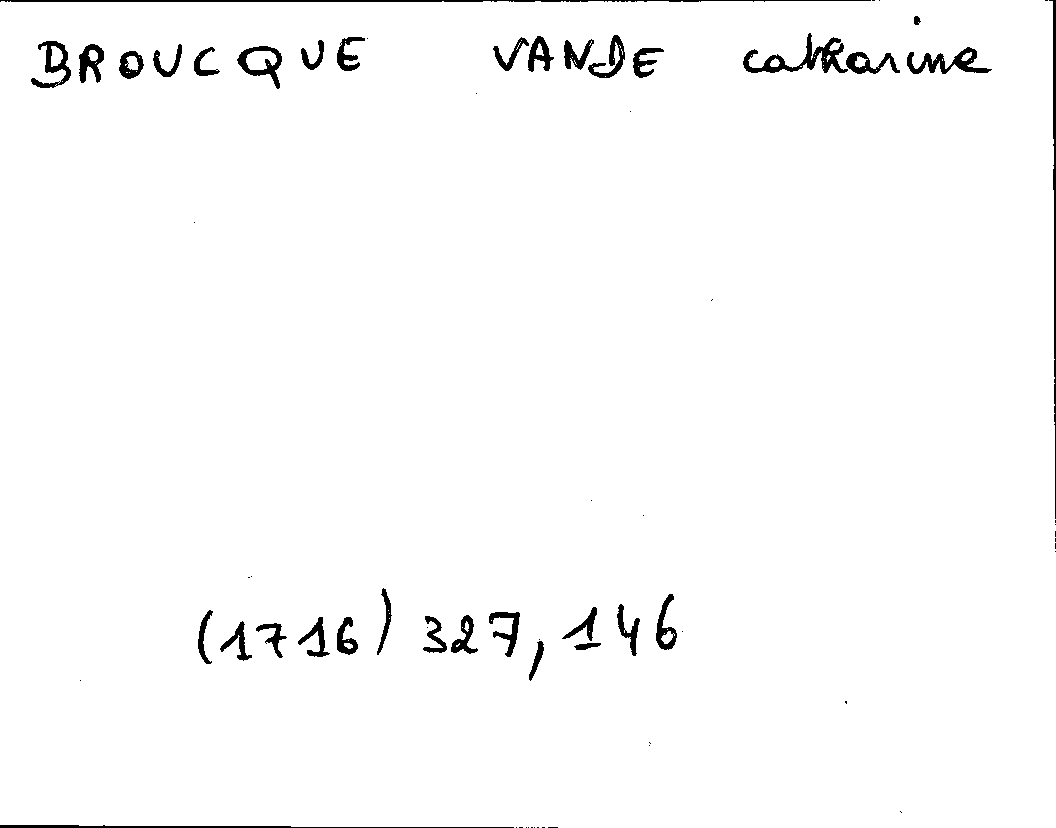 BROUCQUE VANDE catharine
(1716) 327, 146